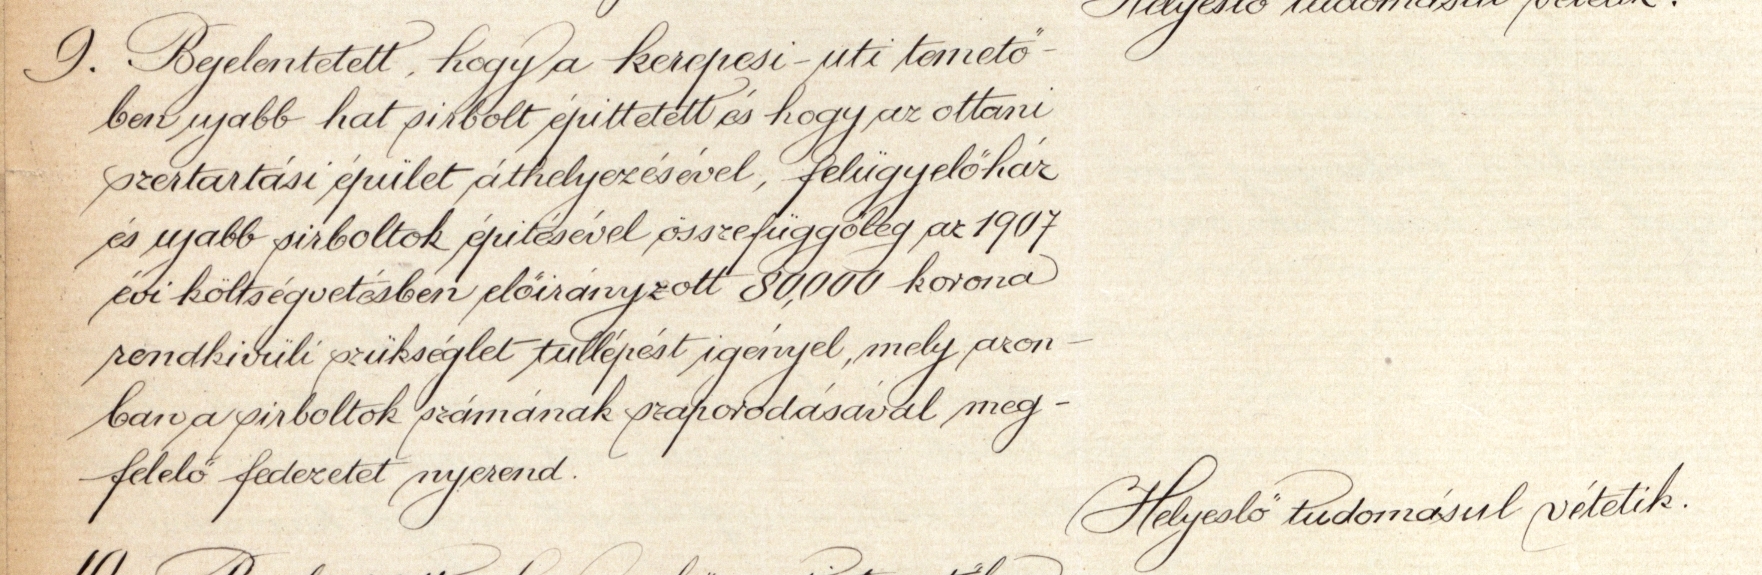 Helyeslő tudomásul vétetik.
9. Bejelentetett, hogy a kerepesi-uti temető-
ben ujabb hat sirbolt épittetett és hogy az ottani
szertartási épület áthelyezésével, felügyelőház
és ujabb sirboltok épitésével összefüggőleg az 1907
évi költségvetésben előirányzott 80,000 korona
rendkivüli szükséglet tullépést igényel, mely azon-
ban a sirboltok számának szaporodásával meg-
felelő fedezetet nyerend.
Helyeslő tudomásul vétetik.
10.